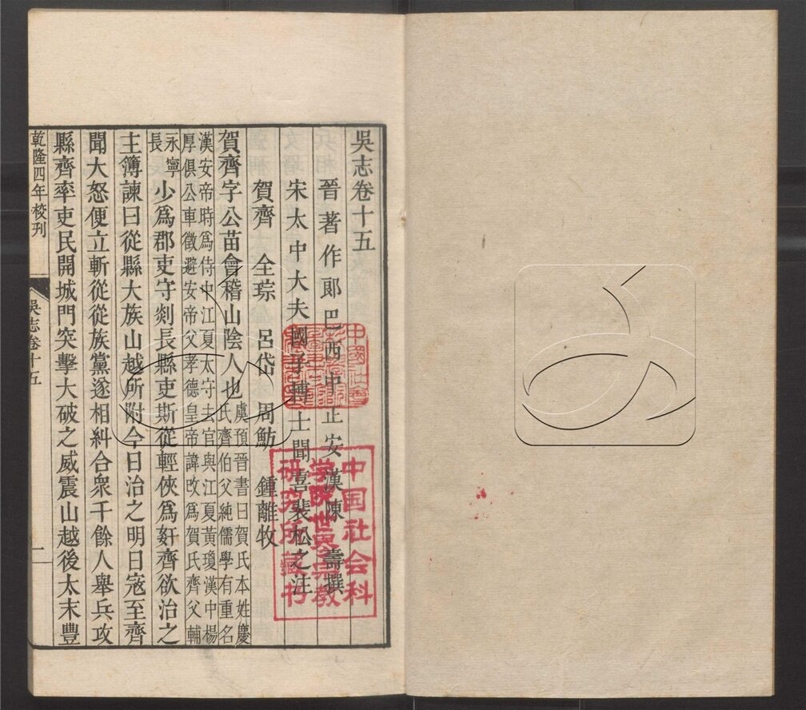 吳志卷十五
晉著作郎巴西中正安漢陳壽撰
宋太中大夫國子博士聞喜裴松之注
賀齊 全琮 呂岱 周魴 鍾離牧
賀齊字公苗會稽山陰人也
虞預晉書曰賀氏本姓慶
氏齊伯父純儒學有重名
漢安帝時爲侍中江夏太守去官與江夏黃瓊漢中楊
厚俱公車徵避安帝父孝德皇帝諱改爲賀氏齊父輔
永寧
長
少爲郡吏守剡長縣吏斯從輕俠爲姧齊欲治之
主簿諫曰從縣大族山越所附今日治之明日寇至齊
聞大怒便立斬從從族黨遂相糾合衆千餘人舉兵攻
縣齊率吏民開城門突擊大破之威震山越後太末豐
乾隆四年校刊
吳志卷十五
一
中国社会科
学院世界宗教
研究所藏书